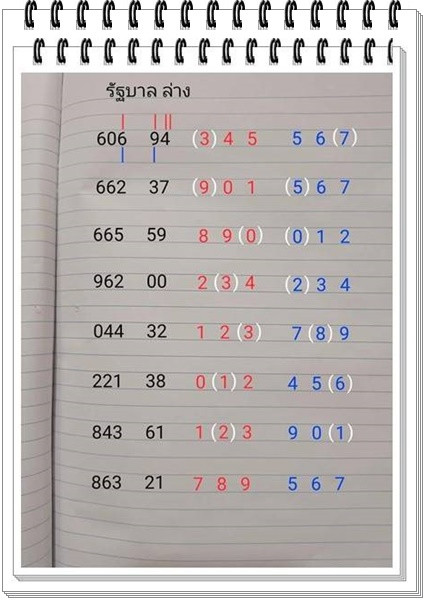 รัฐบาล ล่าง
606 94 (3) 4 5 5 6 (7)
662 37 (9) 0 1 (5) 6 7
665 59 8 9 (0) (0) 1 2
962 00 2 (3) 4 (2) 3 4
044 32 1 2 (3) 7 (8) 9
221 38 0 (1) 2 4 5 (6)
843 61 1 (2) 3 9 0 (1)
863 21 7 8 9 5 6 7